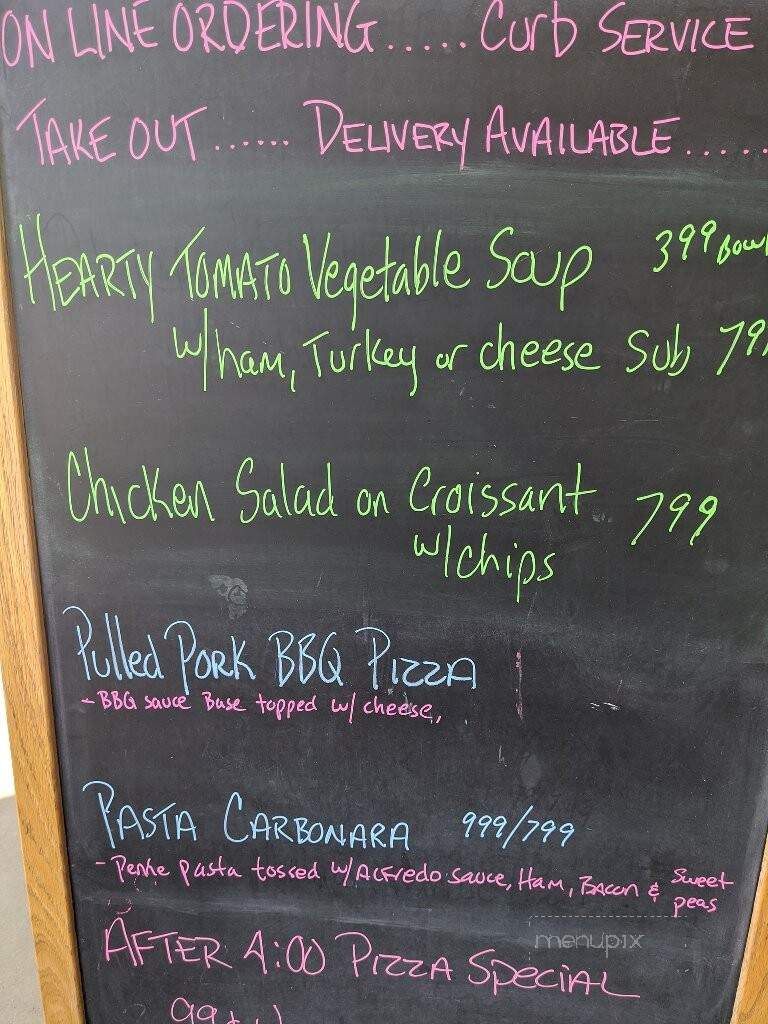 ON LINE ORDERING..... Curb SERVICE
TAKE OUT...... DELIVERY AVAILABLE.....
HEARTY TOMATO Vegetable Soup 399 Bowl
w/ham, Turkey or cheese Sub 799
Chicken Salad on Croissant 799
w/chips
Pulled PORK BBQ PIZZA
- BBQ sauce Base topped w/ cheese,
PASTA CARBONARA 999/799
- Penne pasta tossed w/ ALFredo sauce, Ham, BACON & Sweet
peas
AFTER 4:00 PIZZA SPECIAL
menupix